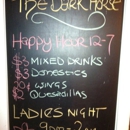 THE DARK HORSE
Happy Hour 12-7
$3 MIXED DRINKS
$3 Domestics
WINGS
$2 Quesadillas
LADIES NIGHT